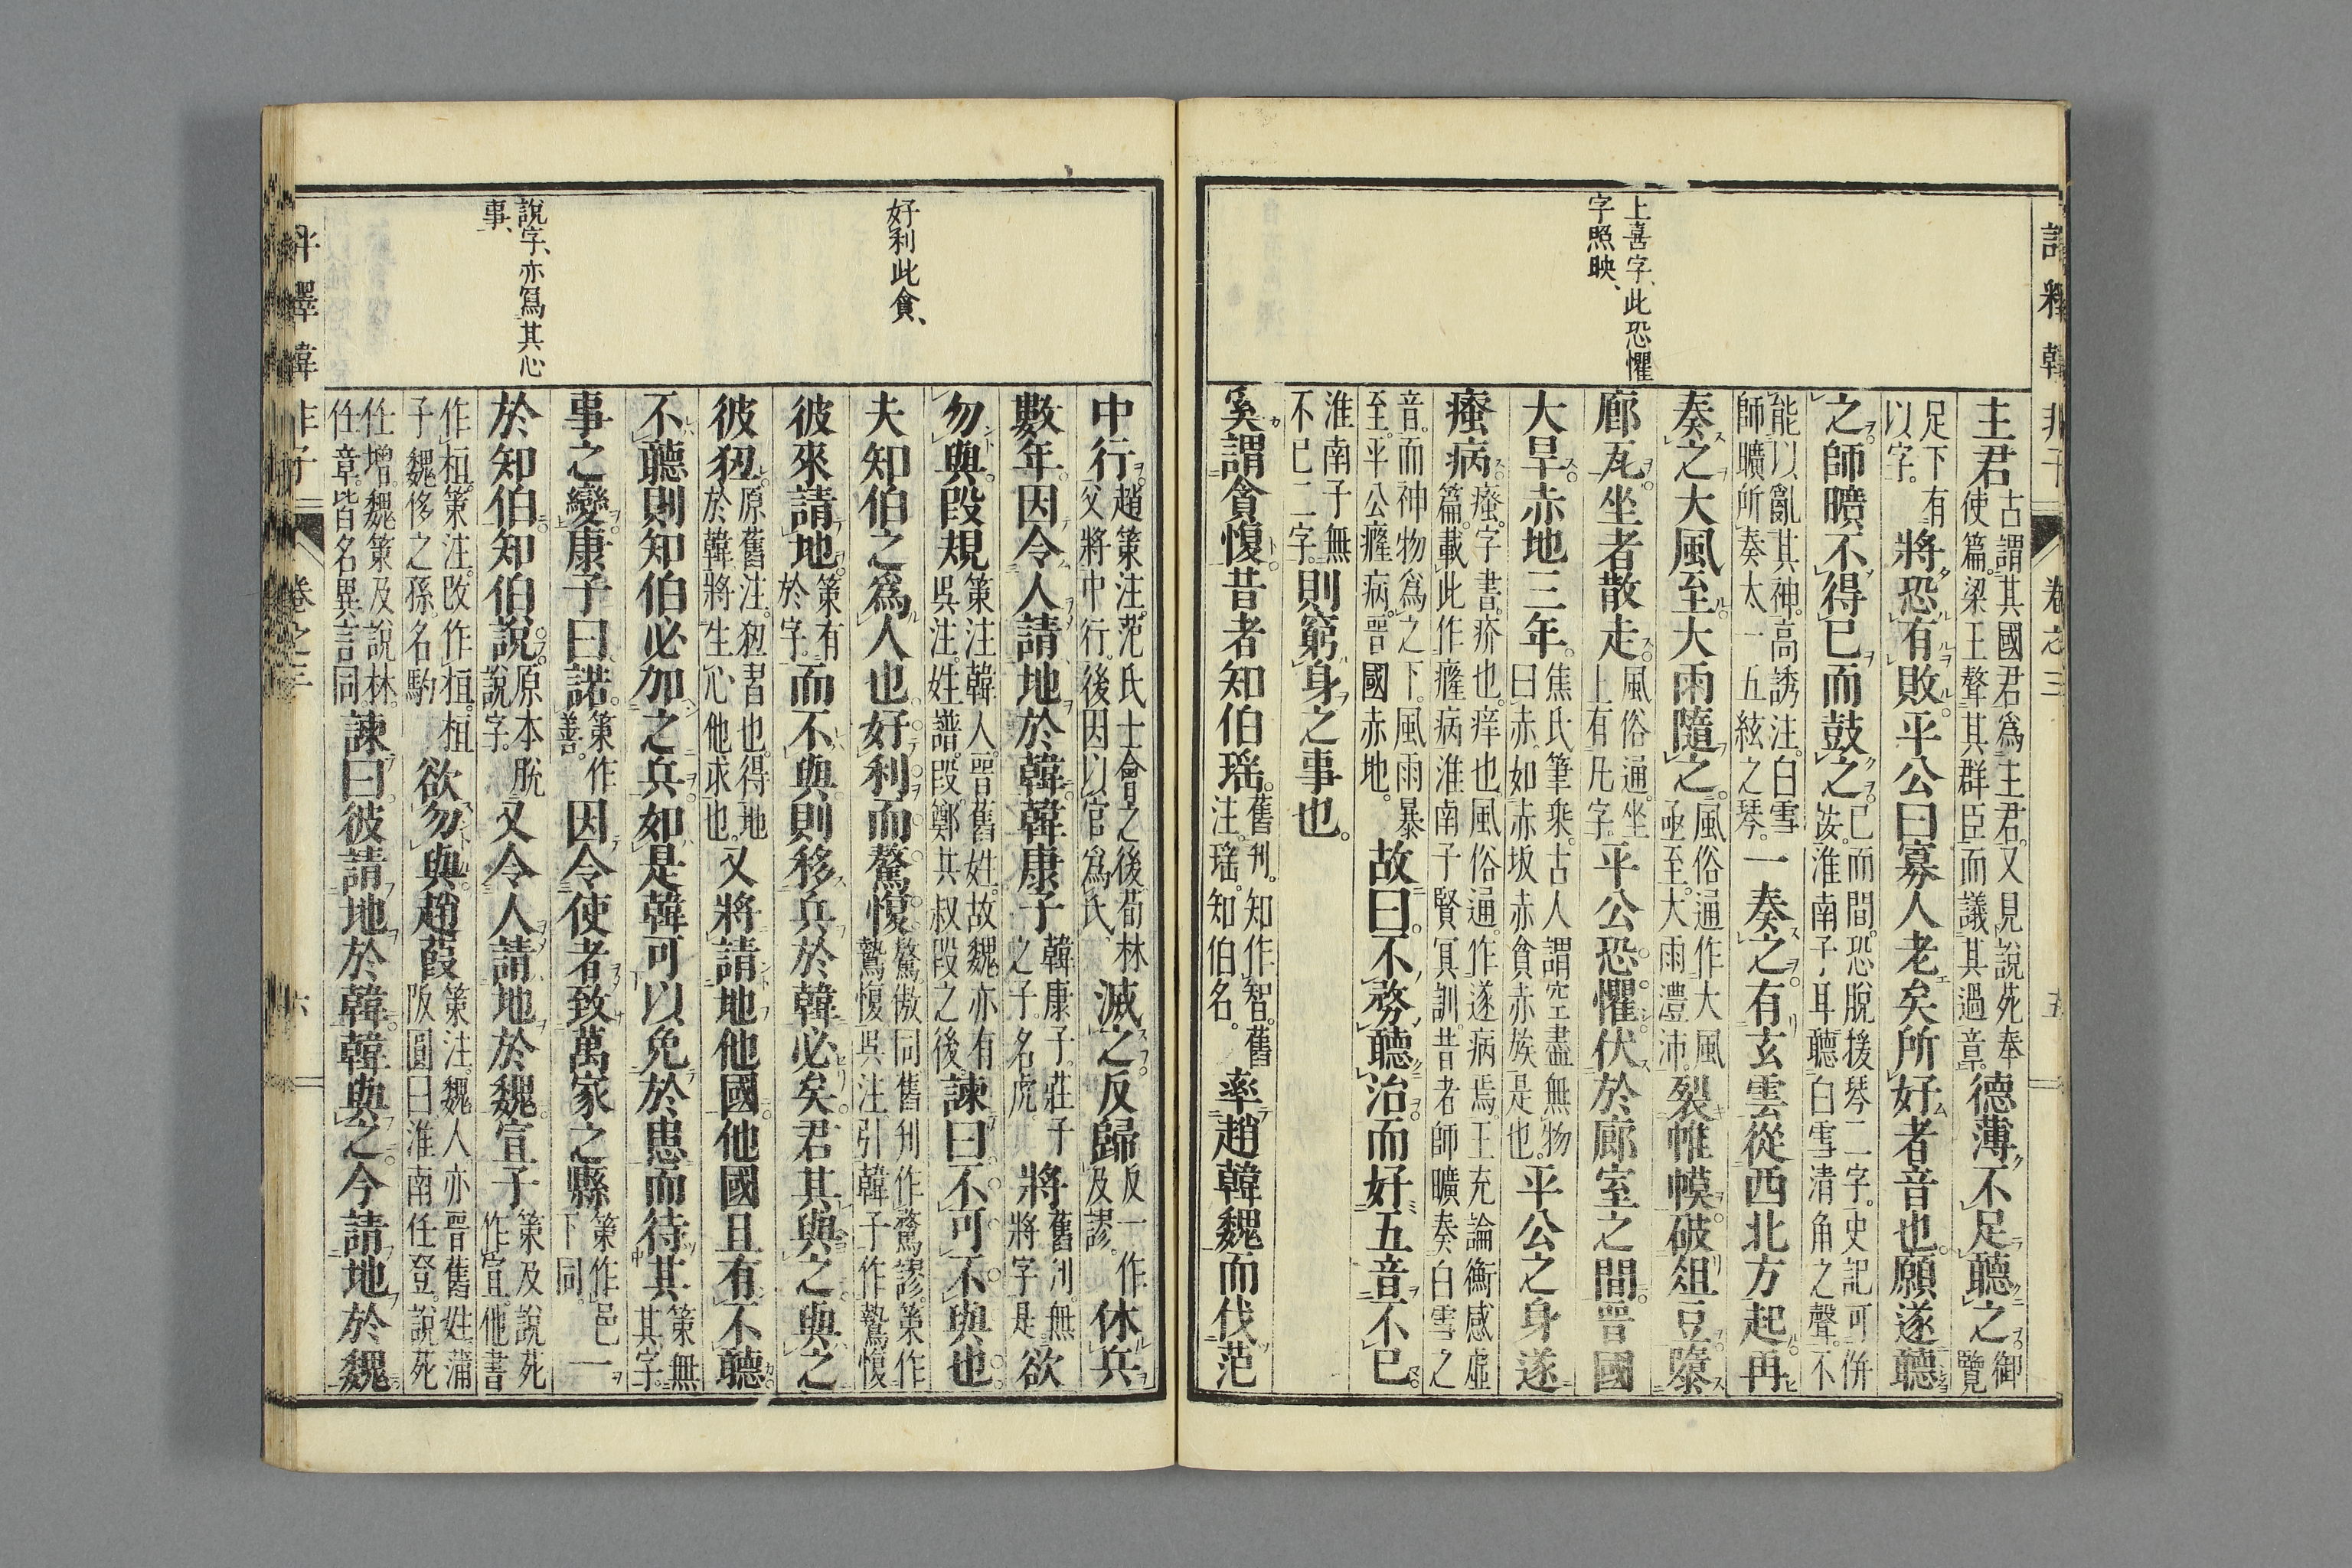 評釋韓非子 卷之三 五
上喜字、此恐懼
字照映、
主君古謂其國君爲主君。又見說苑奉使篇。梁王聲其群臣而議其過章。德薄不足聽之御覽
足下有以字。將恐有敗平公曰寡人老矣所好者音也願遂聽
之師曠不得已而鼓之已而間。恐脫援琴二字。史記可併按。淮南子耳聽白雪清角之聲。不
能以亂其神。高誘注。白雪師曠所奏太一五絃之琴。一奏之有玄雲從西北方起再
奏之大風至大雨隨之風俗通作大風亟至。大雨澧沛。裂帷幙破俎豆隳
廊瓦坐者散走風俗通。坐上有凡字。平公恐懼伏於廊室之間晋國
大旱赤地三年焦氏筆乘。古人謂空盡無物曰赤。如赤坂赤貧赤族是也。平公之身遂
癃病癃。字書。疥也。痒也。風俗通。作遂病焉。王充論衡感虛篇。載此作癃病淮南子賢冥訓。昔者師曠奏白雪之
音。而神物爲之下。風雨暴至。平公癃病。晋國赤地。故曰不務聽治而好五音不已
淮南子無不已二字。則窮身之事也。
奚謂貪愎昔者知伯瑤舊刊。知作智。舊注。瑤。知伯名。率趙韓魏而伐范
好利此貪、
說字、亦寫其心
事、
中行趙策注。范氏士會之後荀林父將中行。後因以官爲氏。滅之反歸反一作及謬。休兵
數年因令人請地於韓韓康子韓康子。莊子之子。名虎。將舊刊。無將字是欲
勿與段規策注韓人。晋舊姓。故魏亦有吳注。姓譜。段鄭共叔段之後諫曰不可不與也
夫知伯之爲人也好利而驁愎驁。傲同舊刊作騖謬。策作鷙愎吳注引韓子作鷙愎
彼來請地策有於字。而不與則移兵於韓必矣君其與之與之
彼狃原舊注。狃習也。得地於韓將生心他求也。又將請地他國他國且有不聽
不聽則知伯必加之兵如是韓可以免於患而待其策無其字。
事之變康子曰諾策作善。因令使者致萬家之縣策作邑一下同。
於知伯知伯說原本脫說字。又令人請地於魏宣子策及說苑作宣。他書
作桓。策注。改作桓。桓子魏侈之孫。名駒欲勿與趙葭策注。魏人亦晋舊姓蒲阪圓曰淮南任登。說苑
任增。魏策及說林。任章。皆名異言同諫曰彼請地於韓韓與之今請地於魏
卷之三 六